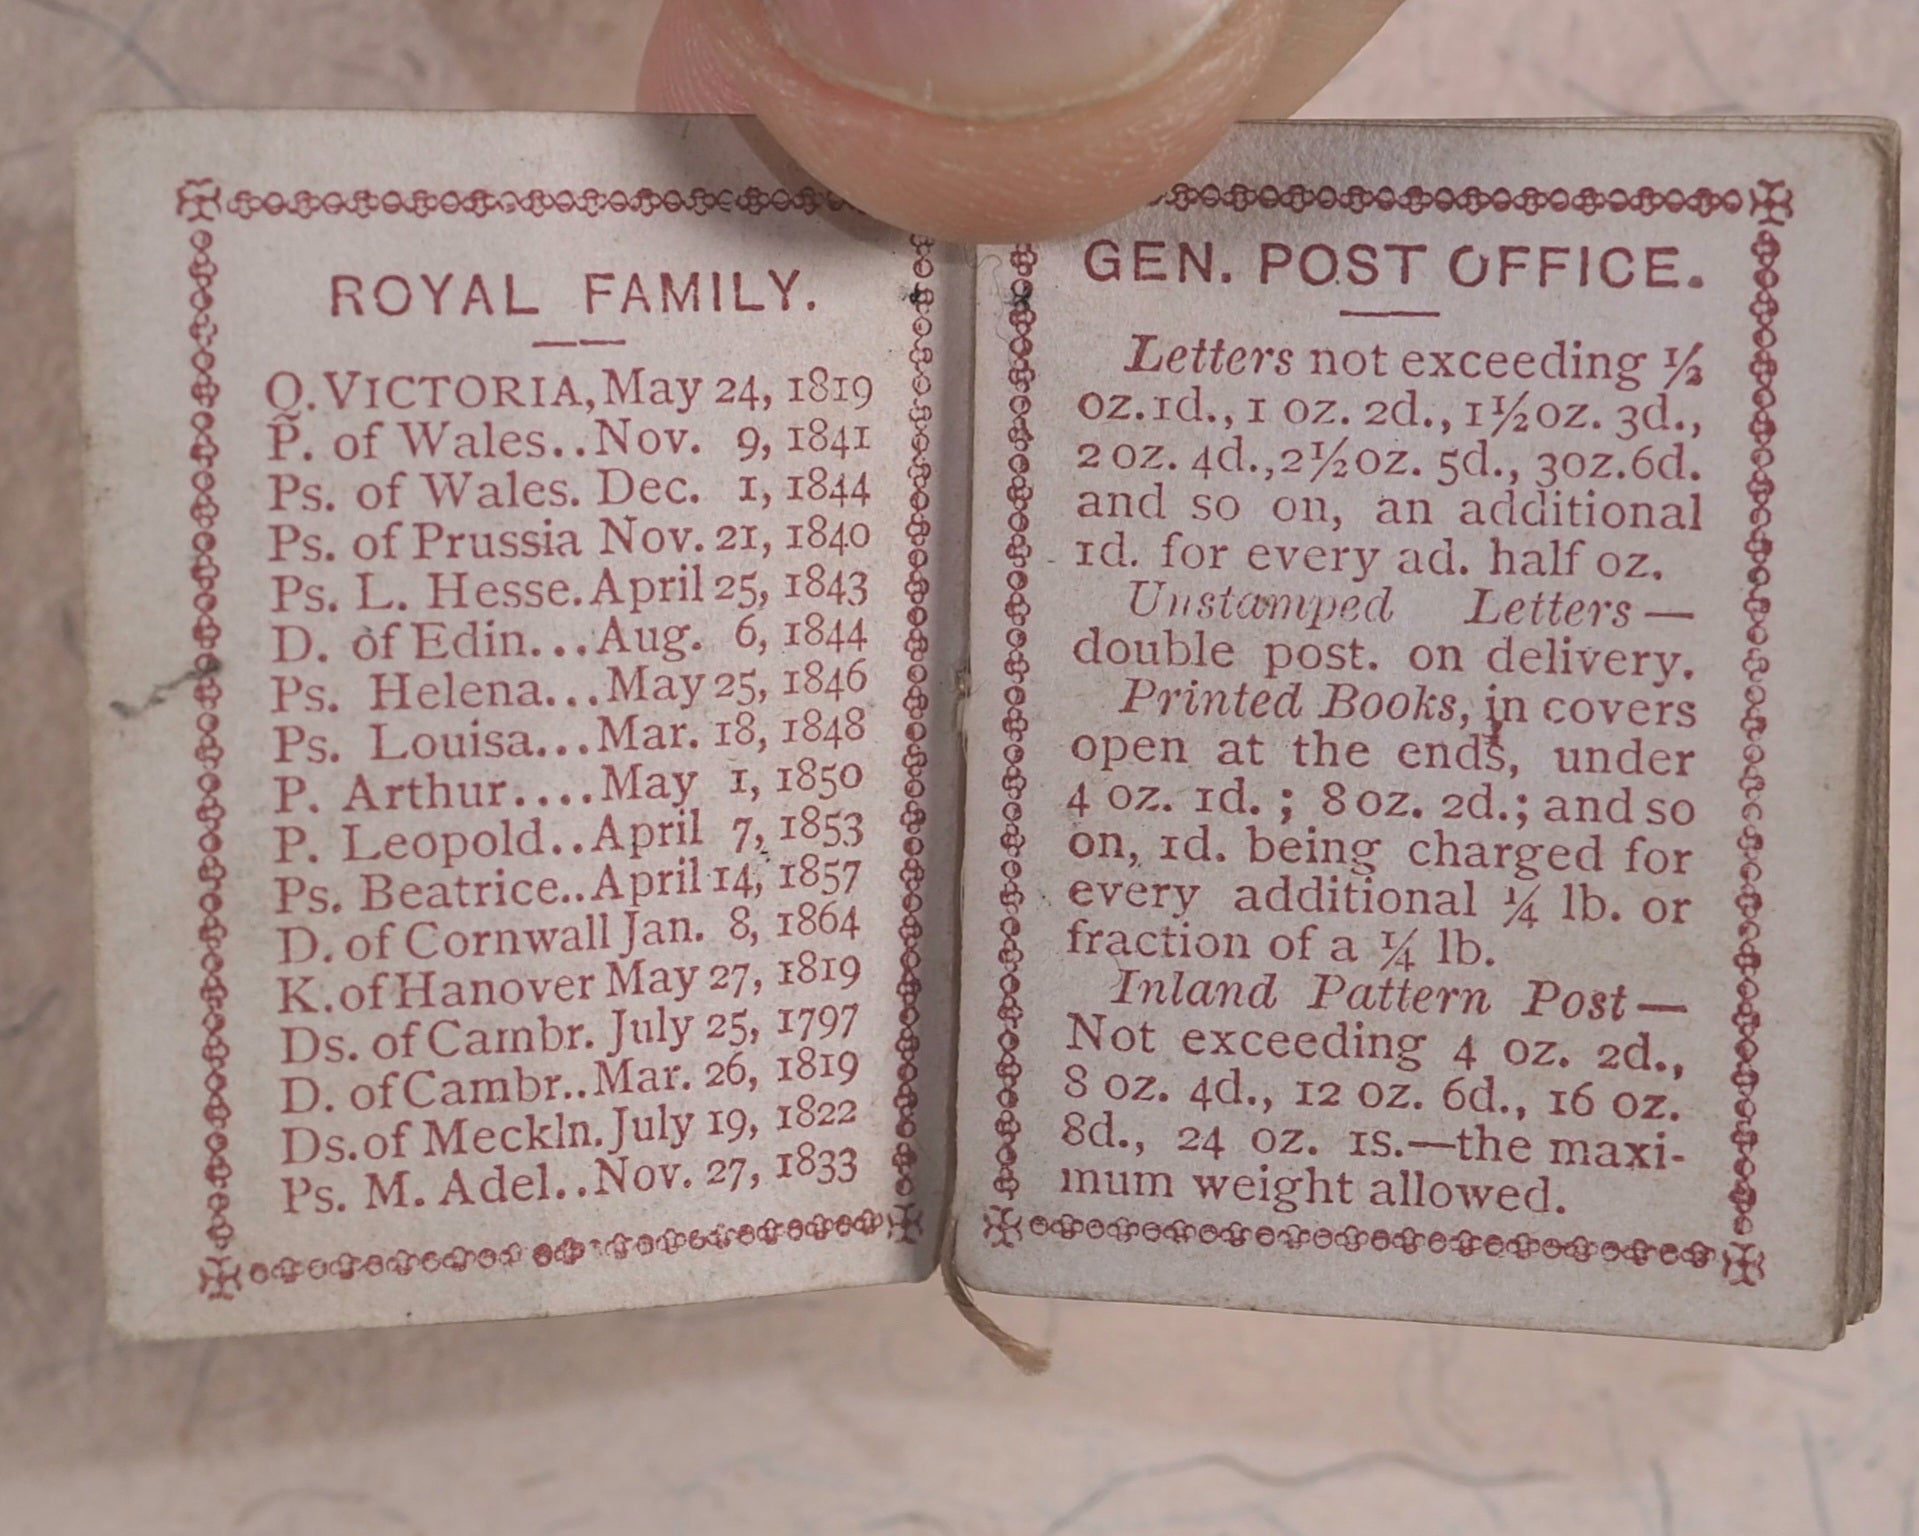 ROYAL FAMILY.
Q. VICTORIA, May 24, 1819
P. of Wales..Nov. 9, 1841
Ps. of Wales. Dec. 1, 1844
Ps. of Prussia Nov. 21, 1840
Ps. L. Hesse. April 25, 1843
D. of Edin...Aug. 6, 1844
Ps. Helena...May 25, 1846
Ps. Louisa...Mar. 18, 1848
P. Arthur....May 1, 1850
P. Leopold..April 7, 1853
Ps. Beatrice..April 14, 1857
D. of Cornwall Jan. 8, 1864
K. of Hanover May 27, 1819
Ds. of Cambr. July 25, 1797
D. of Cambr..Mar. 26, 1819
Ds. of Meckln. July 19, 1822
Ps. M. Adel..Nov. 27, 1833
GEN. POST OFFICE.
Letters not exceeding ½
oz. 1d., 1 oz. 2d., 1½ oz. 3d.,
2 oz. 4d., 2½ oz. 5d., 3 oz. 6d.
and so on, an additional
1d. for every ad. half oz.
Unstamped Letters—
double post. on delivery.
Printed Books, in covers
open at the ends, under
4 oz. 1d. ; 8 oz. 2d.; and so
on, 1d. being charged for
every additional ¼ lb. or
fraction of a ¼ lb.
Inland Pattern Post—
Not exceeding 4 oz. 2d.,
8 oz. 4d., 12 oz. 6d., 16 oz.
8d., 24 oz. 1s.—the maxi-
mum weight allowed.